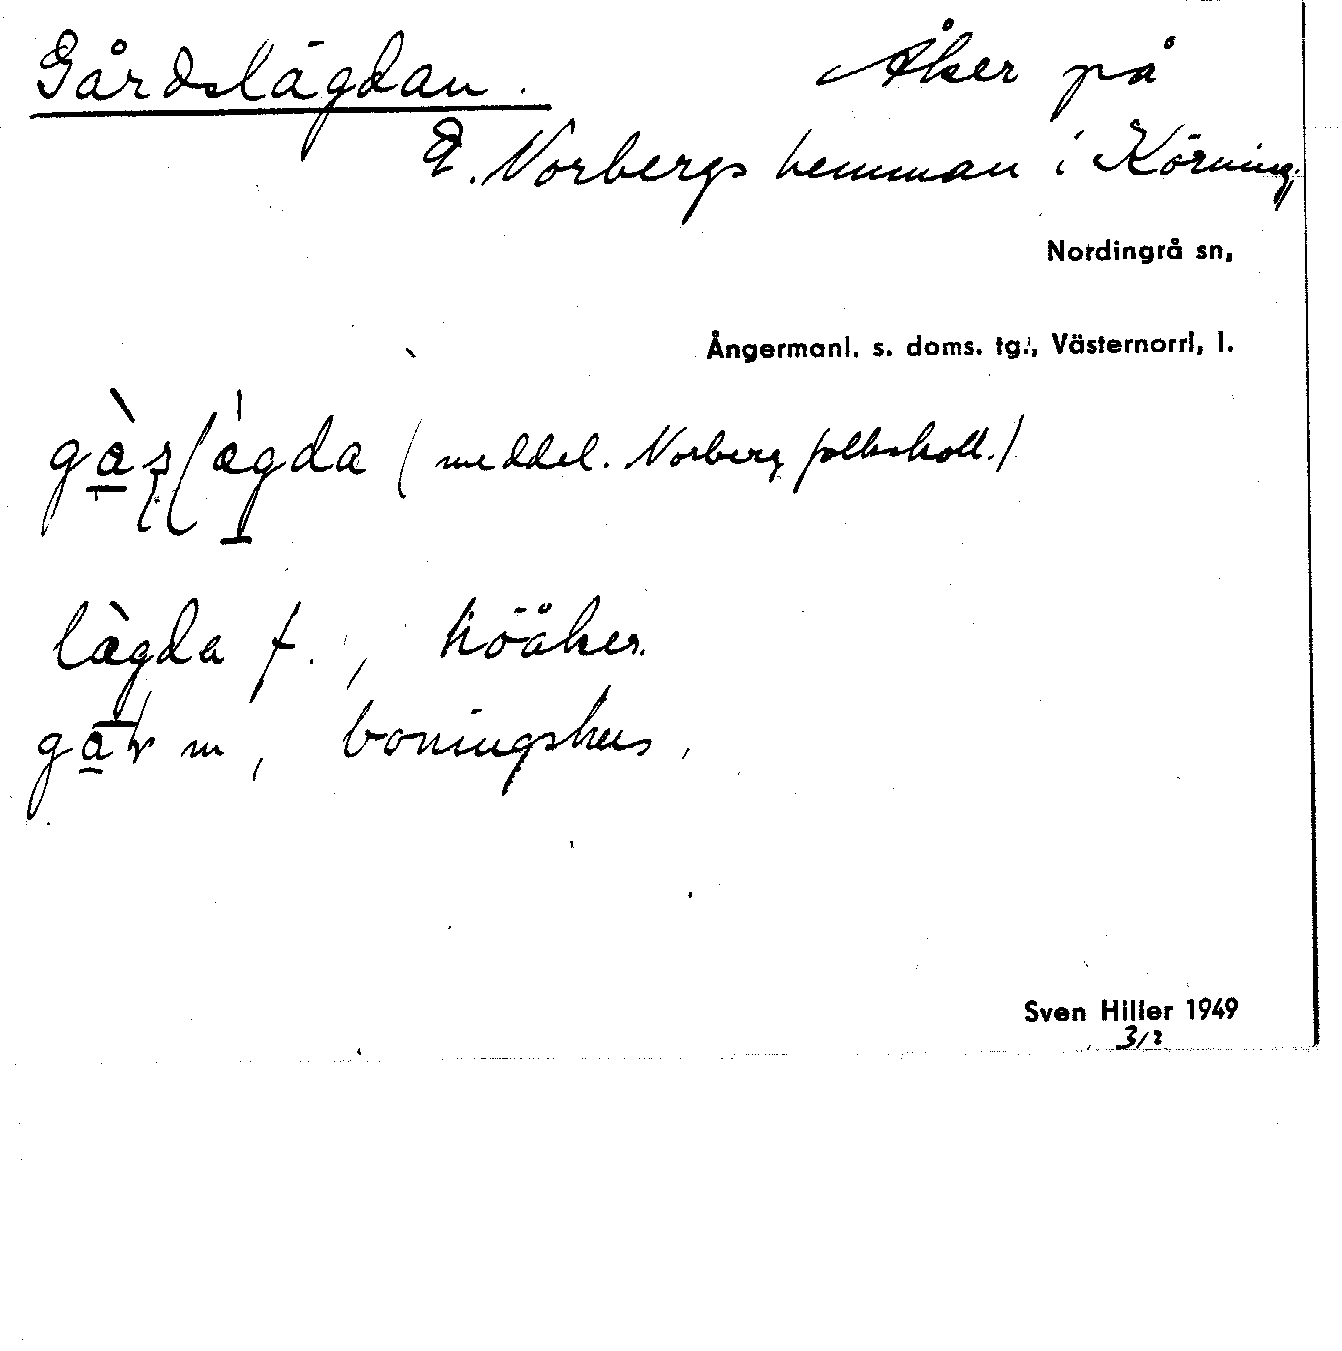 Gårdslägdan. Åker på
E. Norbergs hemman i Körning,
Nordingrå sn,
Ångermanl. s. doms. tg., Västernorrl, l.
(meddel. Norberg folkskoll.)
lægda f., höåker.
m, boningshus,
Sven Hiller 1949
3/2